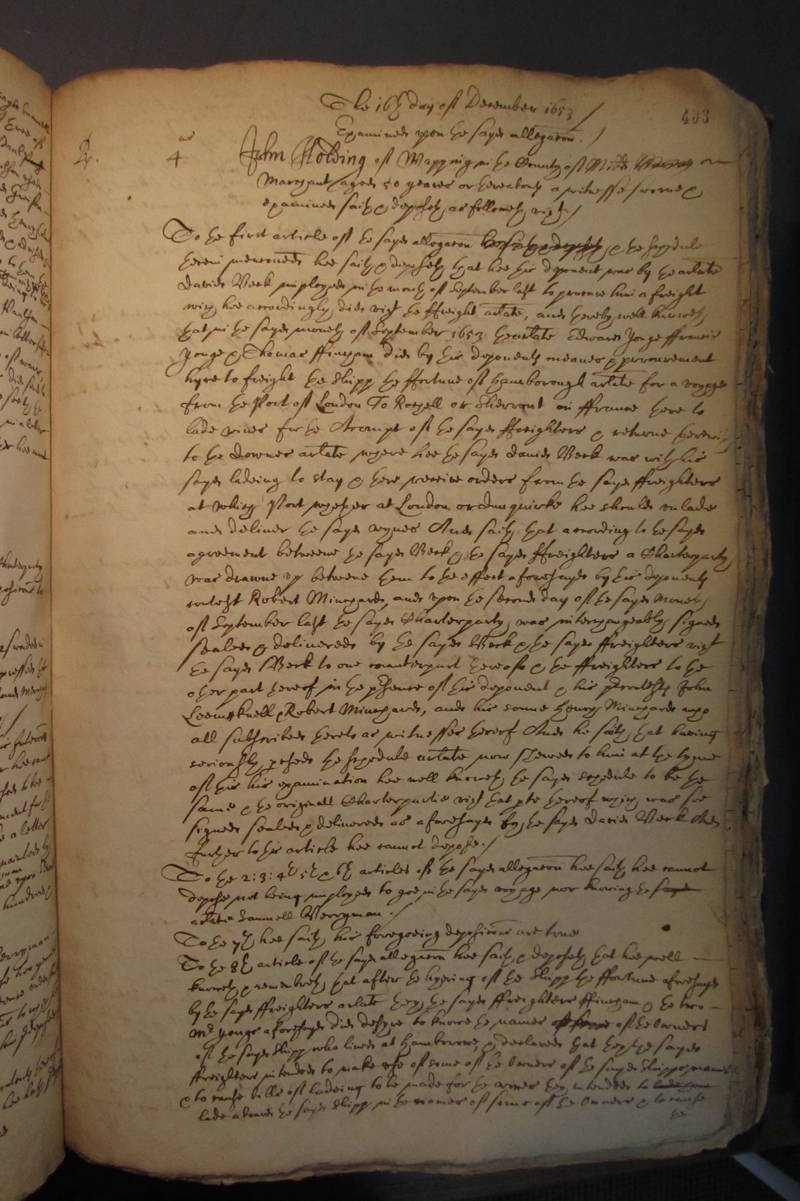 The 16th day of December 1653 /
403
Examined upon the sayd allegaõn. /
4us John Holding of Wapping in the County of Midds
Marryner aged 50 yeares or thereabouts a witnesse sworne &
examined saith & deposeth as followeth vizt /
To the first article of the sayd allegaõn & the schedule
therein menconed hee saith & deposeth that hee this deponent was by the arlate
David Beck imployed in the moneth of September last to procure him a freight
who hee accordingly did vizt the ffreight arlate, and thereby well knoweth
that in the sayd moneth of September 1653 the arlate Edward Yonge ffrancis
Yonge & Thomas ffinsham did by this deponents meanes & procurement
hyre to freight the shipp the ffortune of Hamborough arlate for a voyage
from the Port of London To or in ffrance there to
lade wines for the Accompt of the sayd ffreighters & returne therewith
to the Downes arlate where hee the sayd David Beck was with his
sayd ladeing to stay & there receive orders from the sayd ffreighters
at which Port whether at London or dunquirke hee should unlade
and deliver the sayd wynes And saith that according to the sayd
agreement betweene the sayd Beck & the sayd ffreighters a Charterparty
was drawne up betweene them to the effect aforesayd by this deponents
contest Robert Minyards, and upon the second day of the sayd moneth
of September last the sayd Charterparty was interchangeably signed
sealed & delivered by the sayd Beck & the sayd ffreighters vizt
the sayd Beck to one counterpart thereof & the ffreighters to the
other part thereof in the presence of this deponent & his John
& Robert Minyards, and his sonne Henry Minyards who
all subscribed thereto as witnesses thereof And hee saith that having
seriously perused the schedule arlate now shewed to him at the tyme
of this his examination hee well knoweth the sayd schedule to be the
same & the originall Charterpartie vizt that pte thereof which was soe
signed sealed & delivered as aforesayd by the sayd David Beck And
further to this article hee cannot depose. /
To the 2: 3: 4th 5th & 6th articles of the sayd allegaõn hee saith hee cannot
depose not being imployed to goe in the sayd voyage nor knowing the
arlate Samuell Berryman. /
To the 7th hee saith his foregoeing deposicõn are true
To the 8th article of the sayd allegaõn hee saith & deposeth that hee well
knoweth & remembreth that after the hyering of the shipp the ffortune aforesayd
by the sayd ffreighters arlate they the sayd ffreighters ffinsham & the two
Mr Yonges aforesayd did desyre to knowe the names of the Owners
of the sayd shipp who lived at Hambourow & declared that they the sayd
ffreighters intended to make use of some of the Owners of the sayd shipps names
& to cause bills of ladeing to be made for the wines they intended to
lade aboard the sayd shipp in the names of some of the Owners & to cause
the